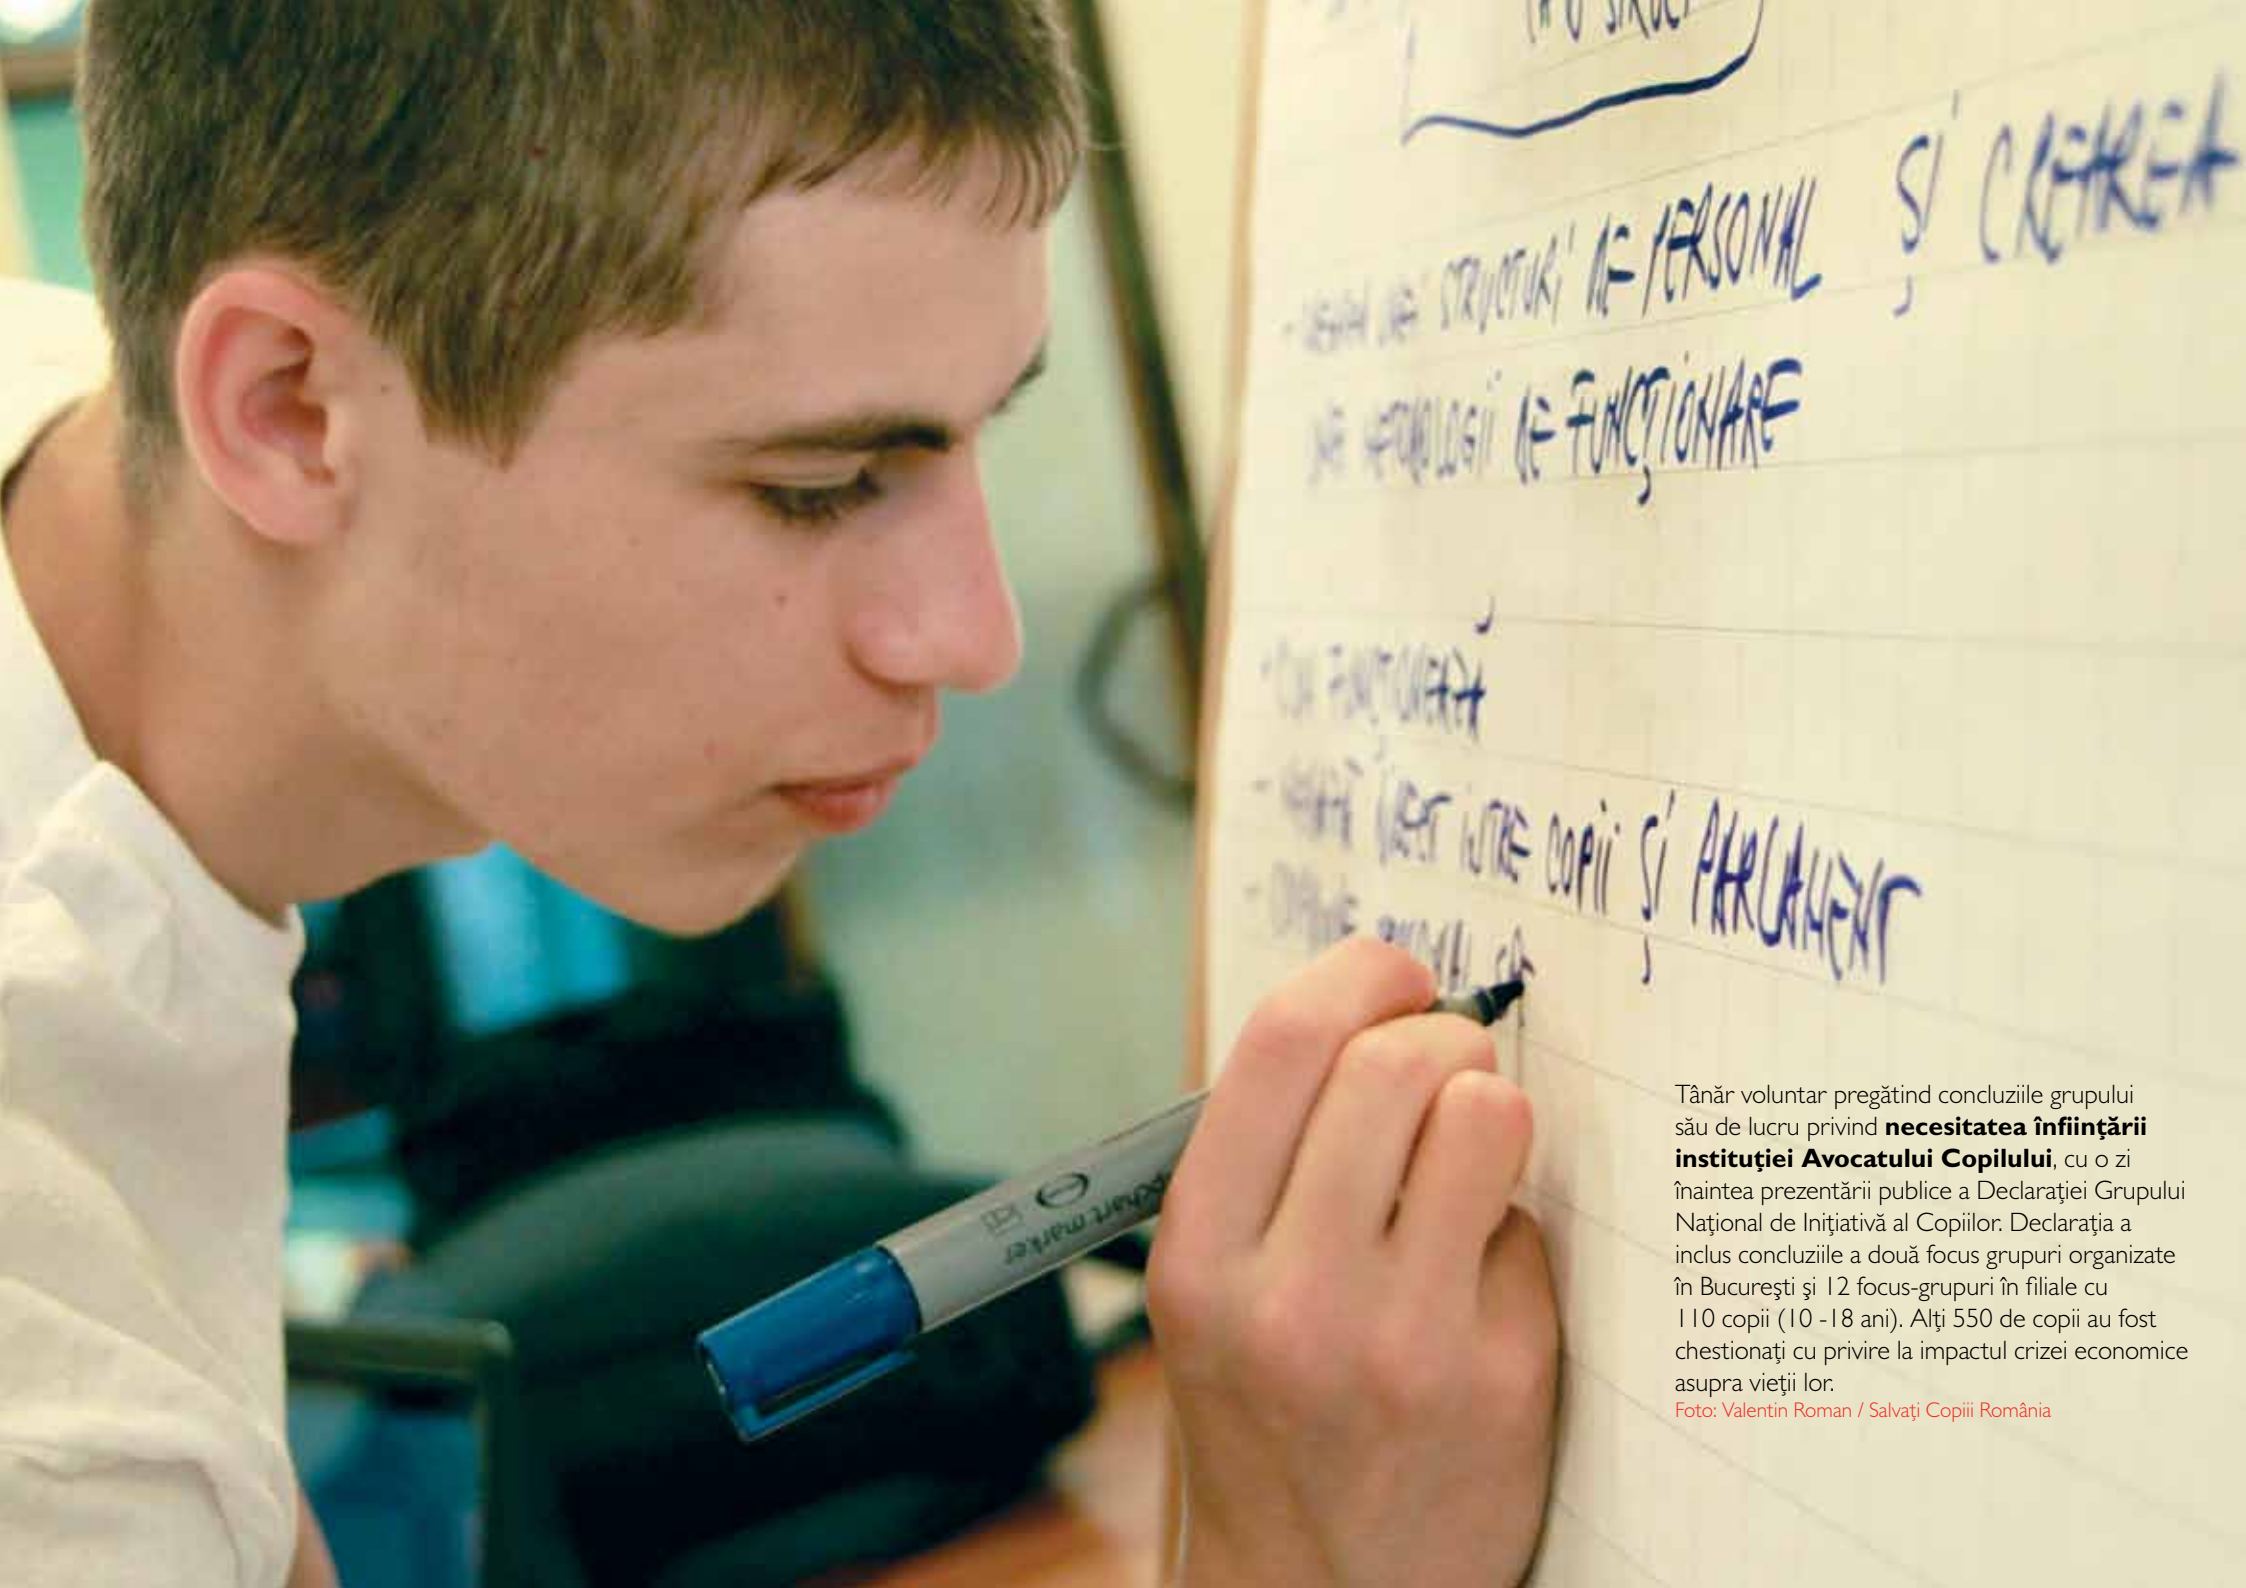 STRUCTURI DE PERSONAL ȘI CREAREA
DE FUNCȚIONARE
FUNCȚIONEAZĂ
COPII ȘI PARLAMENT
chart marker
Tânăr voluntar pregătind concluziile grupului
său de lucru privind necesitatea înființării
instituției Avocatului Copilului, cu o zi
înaintea prezentării publice a Declarației Grupului
Național de Inițiativă al Copiilor. Declarația a
inclus concluziile a două focus grupuri organizate
în București și 12 focus-grupuri în filiale cu
110 copii (10 -18 ani). Alți 550 de copii au fost
chestionați cu privire la impactul crizei economice
asupra vieții lor.
Foto: Valentin Roman / Salvați Copiii România